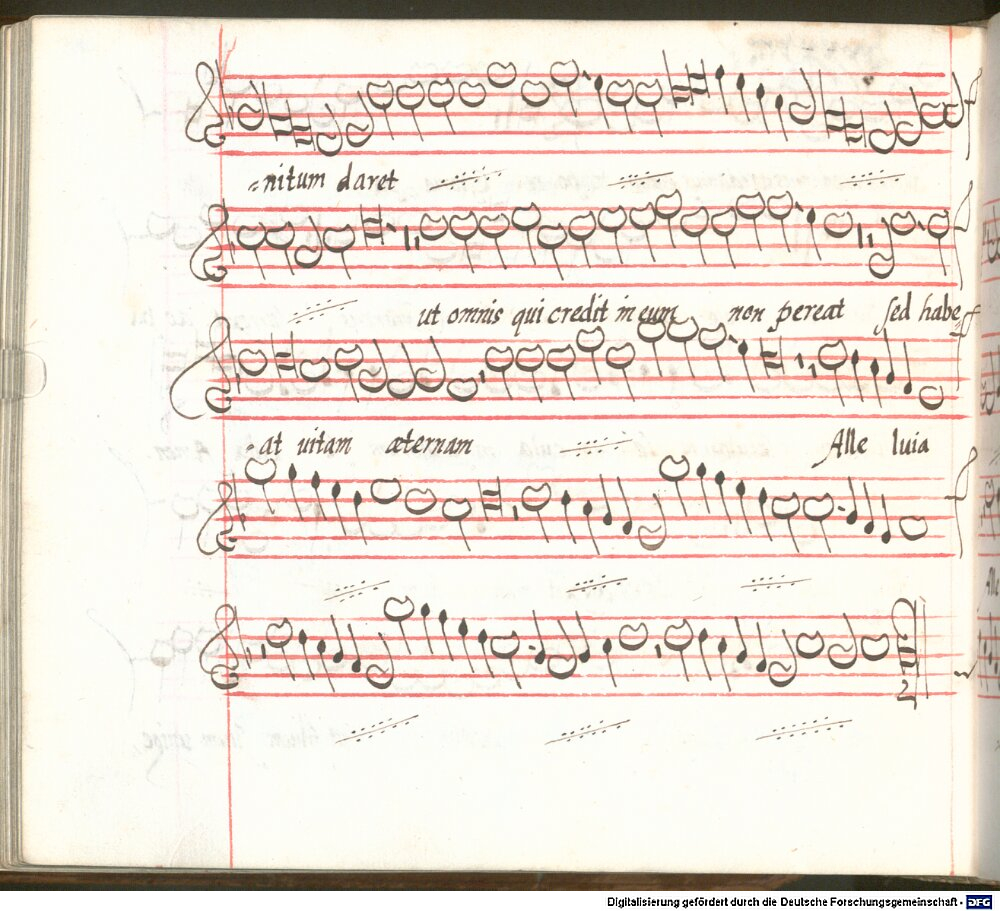 =nitum daret
ut omnis qui credit in eum non pereat sed habe=
at vitam æternam Alle luia
Digitalisierung gefördert durch die Deutsche Forschungsgemeinschaft - DFG